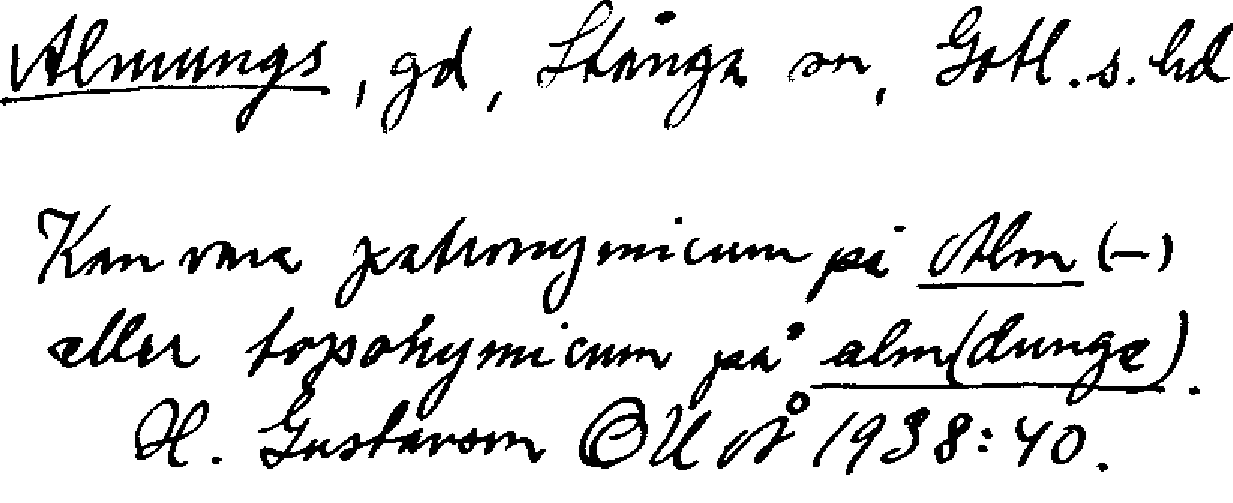 Almungs, gd, Stånga sn, Gotl. s. hd
Kan vara patronymicum på Alm (-)
eller toponymicum på alm(dunge).
H. Gustavson OUÅ 1938:40.